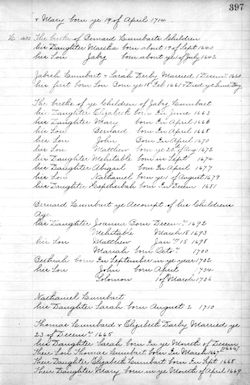 397
& Mary born ye 19 of April 1714
The births of Bernard Lumbarts Children
his Daughter Martha born about 19 of Sept 1640
his Son Jabez born about ye 1 July 1642
Jabesh Lumbart & Sarah Darby Married 1 Decem 1660
his first born Son Born ye 18 Feb 1661 & Died ye same Day
The births of ye Children of Jabez Lumbart
his Daughter Elizabeth born in June 1663
his Daughter Mary born in April 1666
his Son Bernard born in April 1668
his Son John Born in April 1671
his Son Matthew born ye 28 of Aug 1672
his Daughter Mehitable born in Sept 1674
his Daughter Abigail born in April 1677
his Son Nathaniel born ye 1 of August 1679
his Daughter Hepthsibah born in Decem 1681
Bernard Lumbart ye Account of his Children
Age
his Daughter Joanna Born Decem 1692
Mehitable March 18 1693
his Son Matthew Jan 15 1698
Mariah born Octo 1700
Bethiah born in September in ye year 1702
his Son John born April 1704
Solomon 1 of March 1706
Nathaniel Lumbart
his Daughter Sarah born August 2 1710
Thomas Lumbard & Elizabeth Darby Married ye
23 of Decem 1665
his Daughter Sarah born in ye Moneth of Decem
their Son Thomas Lumbart born in March 1667
Their Daughter Elizabeth Lumbart born in Sept 1668
Their Daughter Mary born in ye Moneth of April 1669